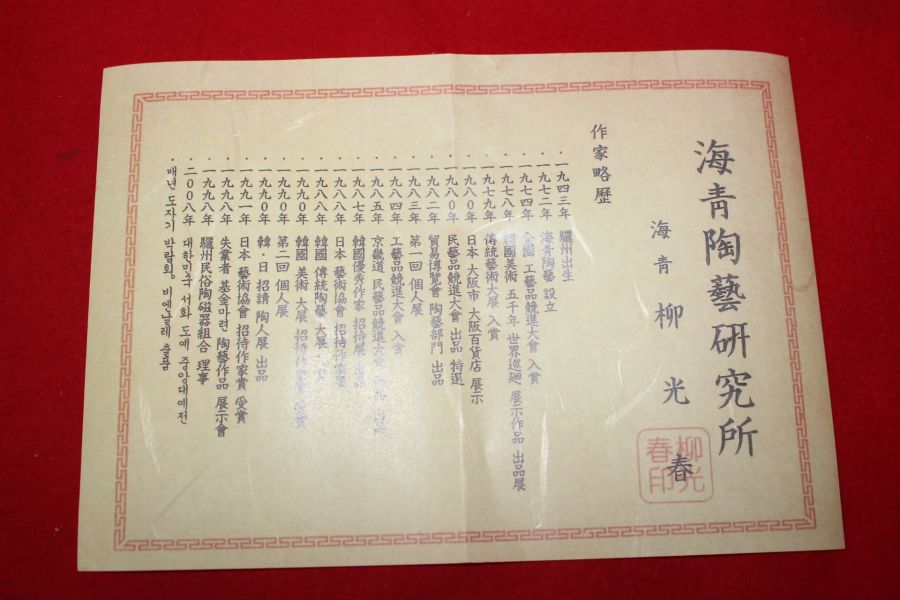 海青陶藝研究所
海青 柳光春
柳光春印
作家略歷
· 一九四三年 驪州出生
· 一九七二年 海青陶藝 設立
· 一九七四年 全國 工藝品競進大會 入賞
· 一九七八年 韓國美術 五千年 世界巡廻 展示作品 出品展
· 一九七九年 傳統藝術大展 入賞
· 一九八〇年 日本 大阪市 大阪百貨店 展示
· 一九八〇年 民藝品競進大會 出品 特選
· 一九八二年 貿易博覽會 陶藝部門 出品
· 一九八三年 第一回 個人展
· 一九八四年 工藝品競進大會 入賞
· 一九八五年 京畿道 民藝品競進大會 出品
· 一九八七年 韓國優秀作家 招待展 出品
· 一九八八年 日本 藝術協會 招待作家展
· 一九八八年 韓國 傳統陶藝 大展 入賞
· 一九九〇年 韓國 美術 大展 招待作家賞 受賞
· 一九九〇年 第二回 個人展
· 一九九〇年 韓·日 招請 陶人展 出品
· 一九九一年 日本 藝術協會 招待作家賞 受賞
· 一九九八年 失業者 基金마련 陶藝作品 展示會
· 一九九八年 驪州民俗陶磁器組合 理事
· 二〇〇八年 대한민국 서화 도예 중앙대예전
· 매년 도자기 박람회, 비엔날레 출품